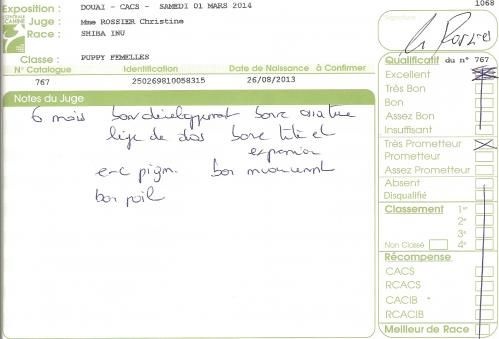 1068
Exposition : DOUAI - CACS - SAMEDI 01 MARS 2014
CENTRALE CANINE
Juge : Mme ROSSIER Christine
Race : SHIBA INU
Classe : PUPPY FEMELLES
N° Catalogue Identification Date de Naissance à Confirmer
767 250269810058315 26/08/2013
Notes du Juge
6 mois bon développement bonne
ligne de dos bonne tête et
expression
exc pigm. bon mouvement
bon poil
Signature
Rossier
Qualificatif du n° 767
Excellent
Très Bon
Bon
Assez Bon
Insuffisant
Très Prometteur X
Prometteur
Assez Prometteur
Absent
Disqualifié
Classement 1er
2e
3e
Non Classé 4e
Récompense
CACS
RCACS
CACIB
RCACIB
Meilleur de Race